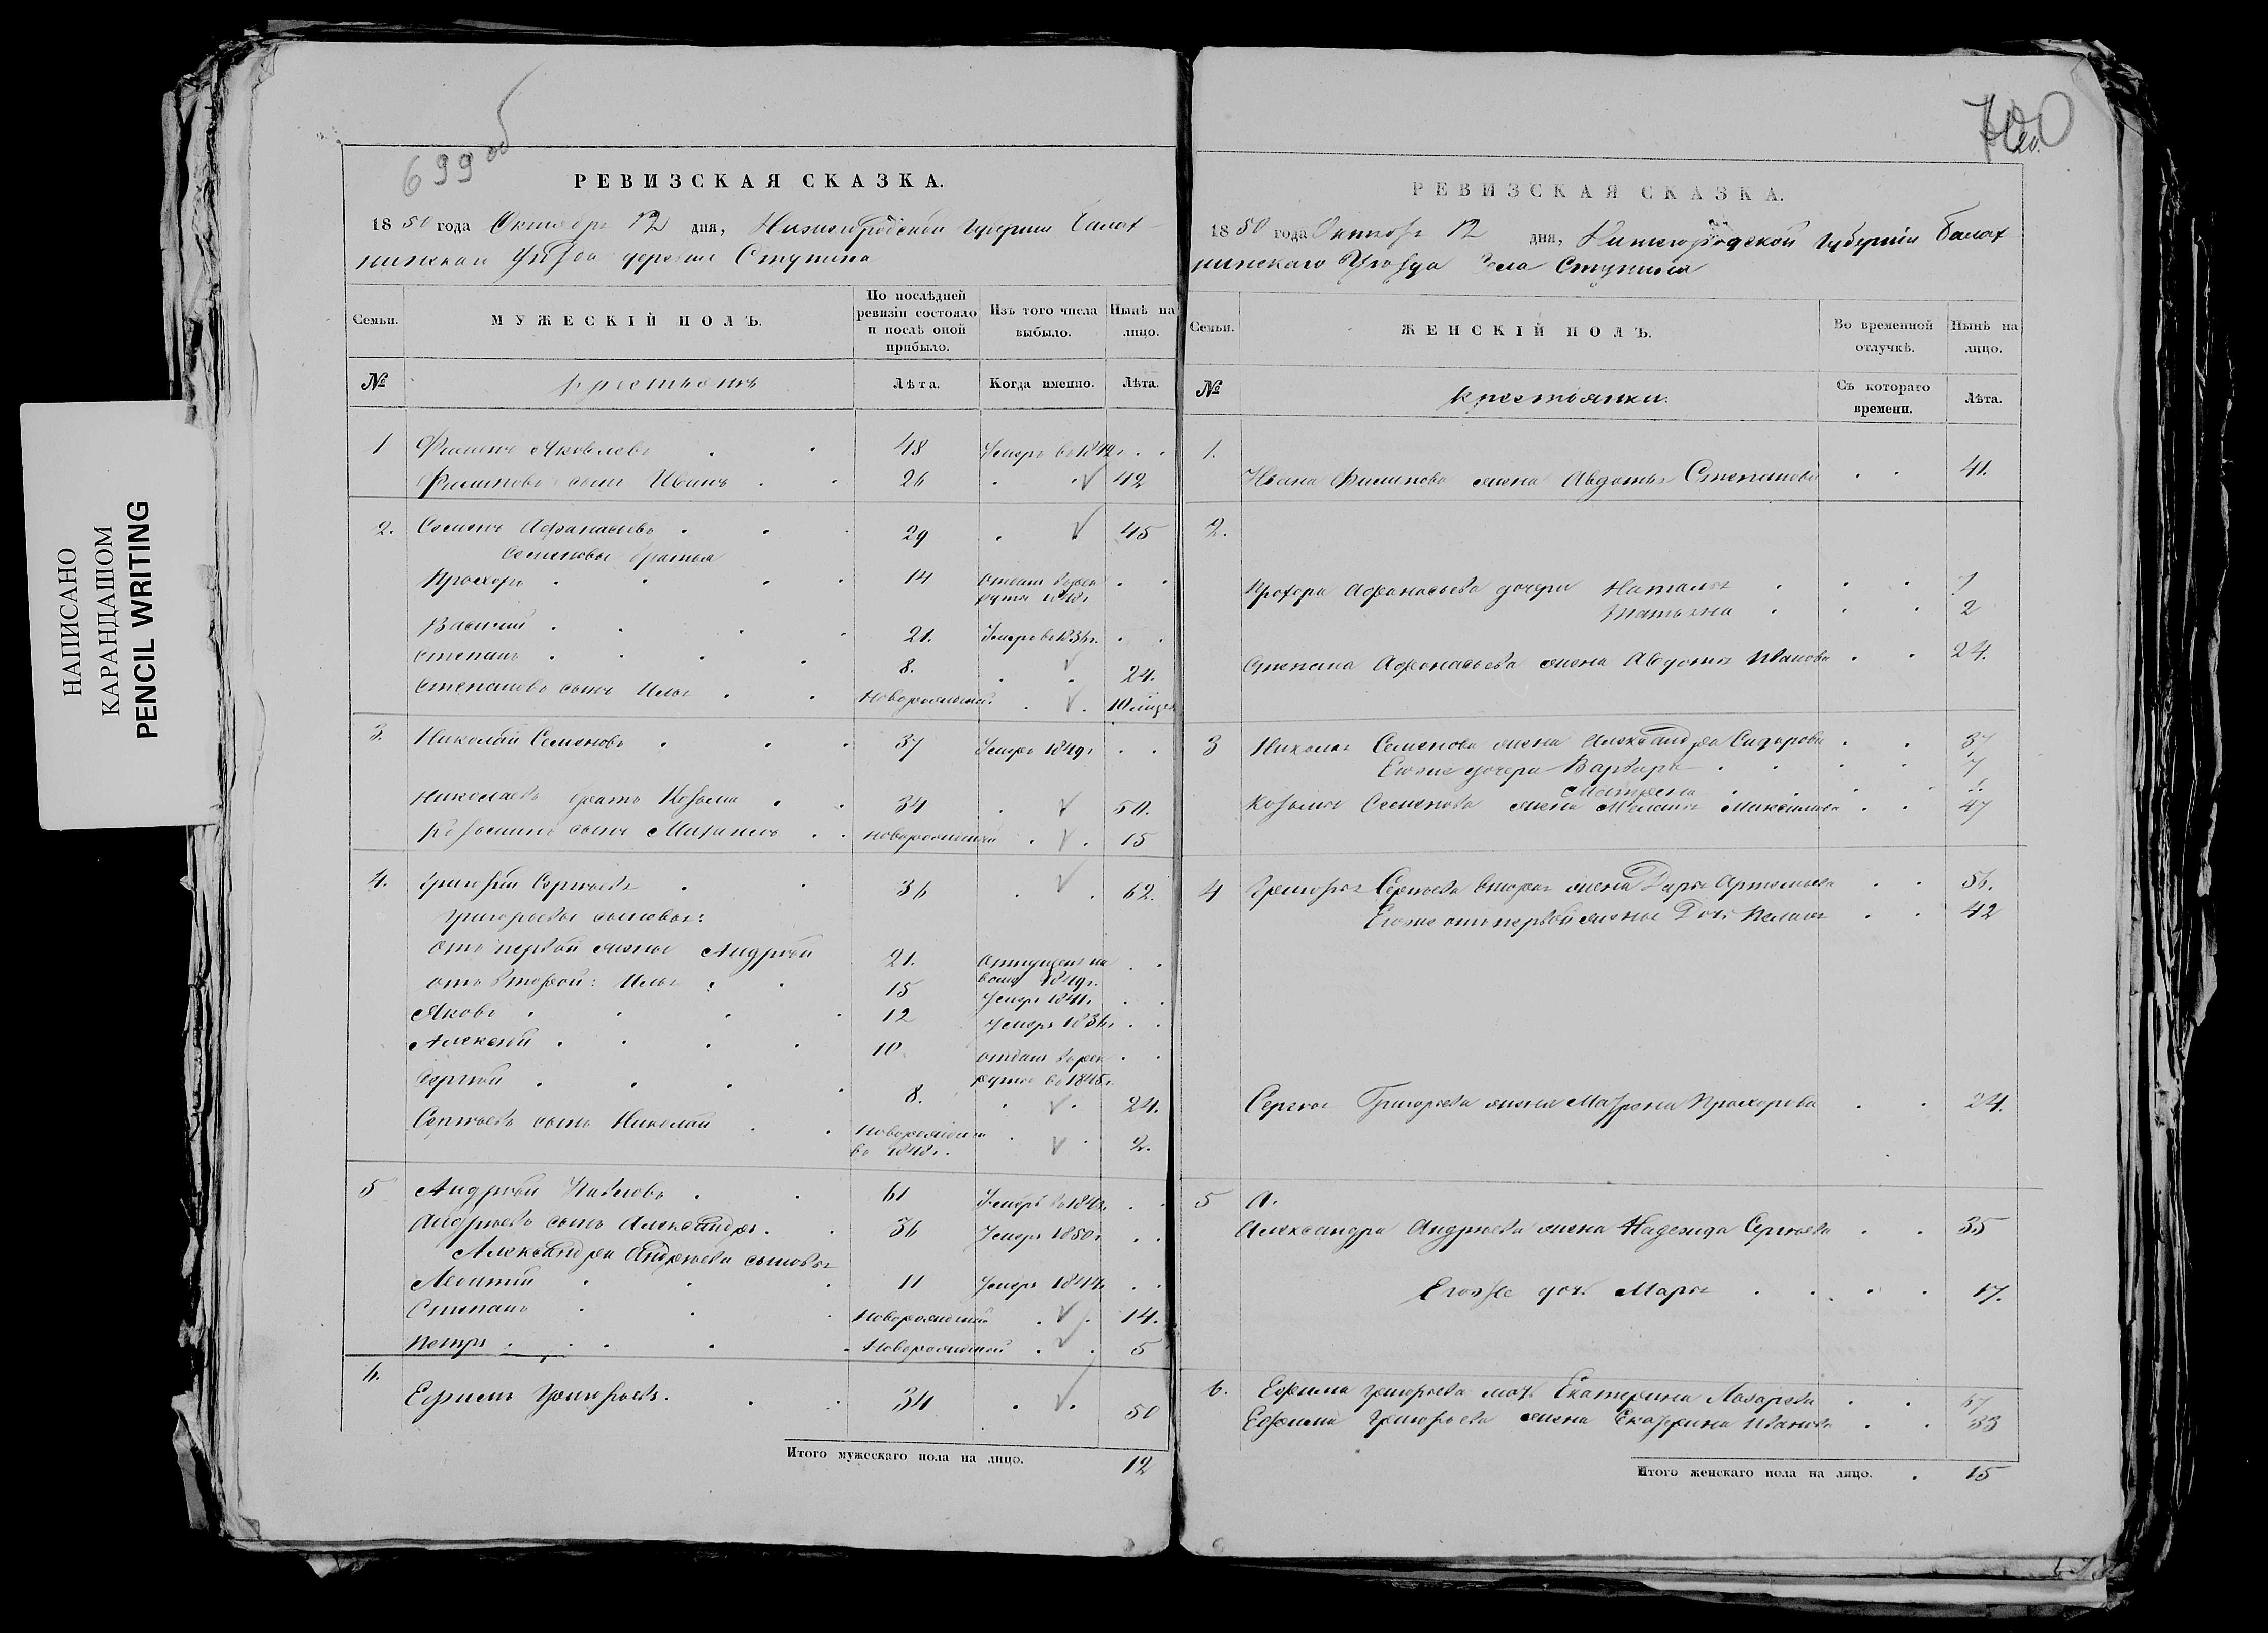 НАПИСАНО
КАРАНДАШОМ
PENCIL WRITING
699 об
РЕВИЗСКАЯ СКАЗКА.
1850 года Октября 12 дня, Нижегородской Губернии Балах-
нинскаго Уѣзда деревни Ступина
Семьи. МУЖЕСКІЙ ПОЛЪ. По послѣдней ревизіи состояло и послѣ оной прибыло. Изъ того числа выбыло. Нынѣ на лицо.
№ Крестьянъ Лѣта. Когда именно. Лѣта.
1 Филипъ Яковлевъ 48 Умеръ въ
Филиповъ сынъ Иванъ 26 42
2. Семенъ Афанасьевъ 29 45
Семеновы братья
Прохоръ 14 отданъ въ рек
руты
Василий 21. Умеръ въ 1836 г.
Степанъ 8. 24.
Степановъ сынъ Илья Новорожденный 10 мѣсяц
3. Николай Семеновъ 37 Умеръ 1849 г
Николаевъ братъ Козьма 34 50.
Козьминъ сынъ новорожденный 15
4. Григорій Сергѣевъ 36 62.
Григорьевы сыновья:
отъ первой жены Андрей 21. Отпущенъ на
волю 1849 г.
отъ второй: Илья 15 Умеръ 1841 г.
Яковъ 12 Умеръ 1836 г
Алексѣй 10 отданъ въ рек
руты въ 1845 г.
Сергѣй 8. 24.
Сергѣевъ сынъ Николай Новорожденн
въ 1848 г. 2.
5 Андрей Павловъ 61 Умеръ въ
Андреевъ сынъ Александръ 36 Умеръ 1850 г
Александра Андреева сыновья
Леонтій 11 Умеръ 1844 г.
Степанъ Новорожденный 14.
Петръ Новорожденной 5
6. Ефимъ Григорьевъ. 34 50
Итого мужескаго пола на лицо. 12
700
20.
РЕВИЗСКАЯ СКАЗКА.
1850 года Октября 12 дня, Нижегородской Губерніи Балах
нинскаго Уѣзда Села Ступина
Семьи. ЖЕНСКІЙ ПОЛЪ. Во временной отлучкѣ. Нынѣ на лицо.
№ Крестьянки. Съ котораго времени. Лѣта.
1. Ивана Филипова жена Авдотья Степанова 41.
2.
Прохора Афанасьева дочери Наталья 7
Татьяна 2
Степана Афанасьева жена Авдотья Иванова 24.
3 Николая Семенова жена Александра Сидорова 37
Егоже дочери Варвара 7
Матрена
Козьмы Семенова жена Маланья Максимова 47
4 Григорья Сергѣева вторая жена Дарья Артемьева 56.
Егоже отъ первой жены Дочь Пелагея 42
Сергѣя Григорьева жена Матрена Прохорова 24.
5 Александра Андреева жена Надежда Сергѣева 35
Егоже дочь Марья 17.
6. Ефима Григорьева мать Екатерина Лазарева 67
Ефима Григорьева жена Екатерина Иванова 33
Итого женскаго пола на лицо. 15